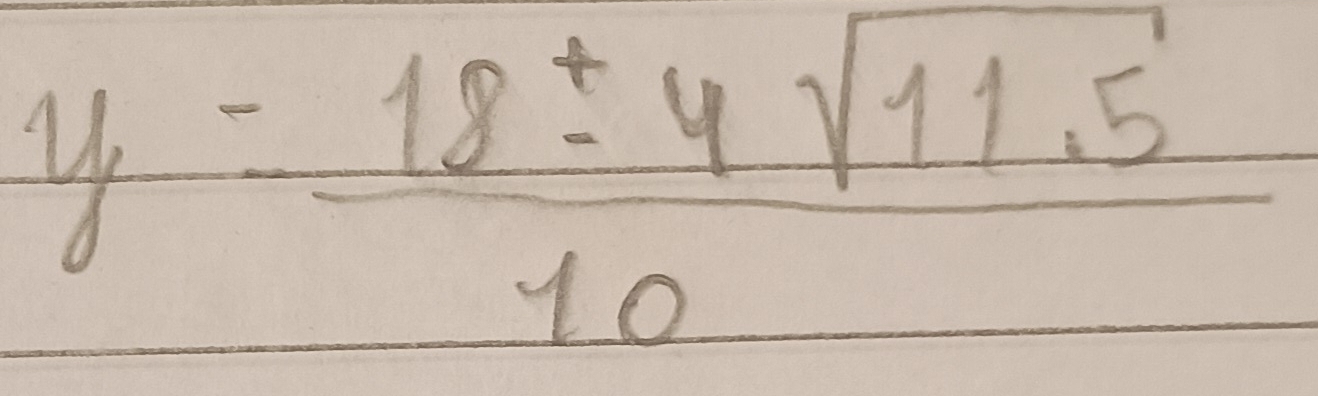 y = \frac{18 \pm 4\sqrt{11.5}}{10}